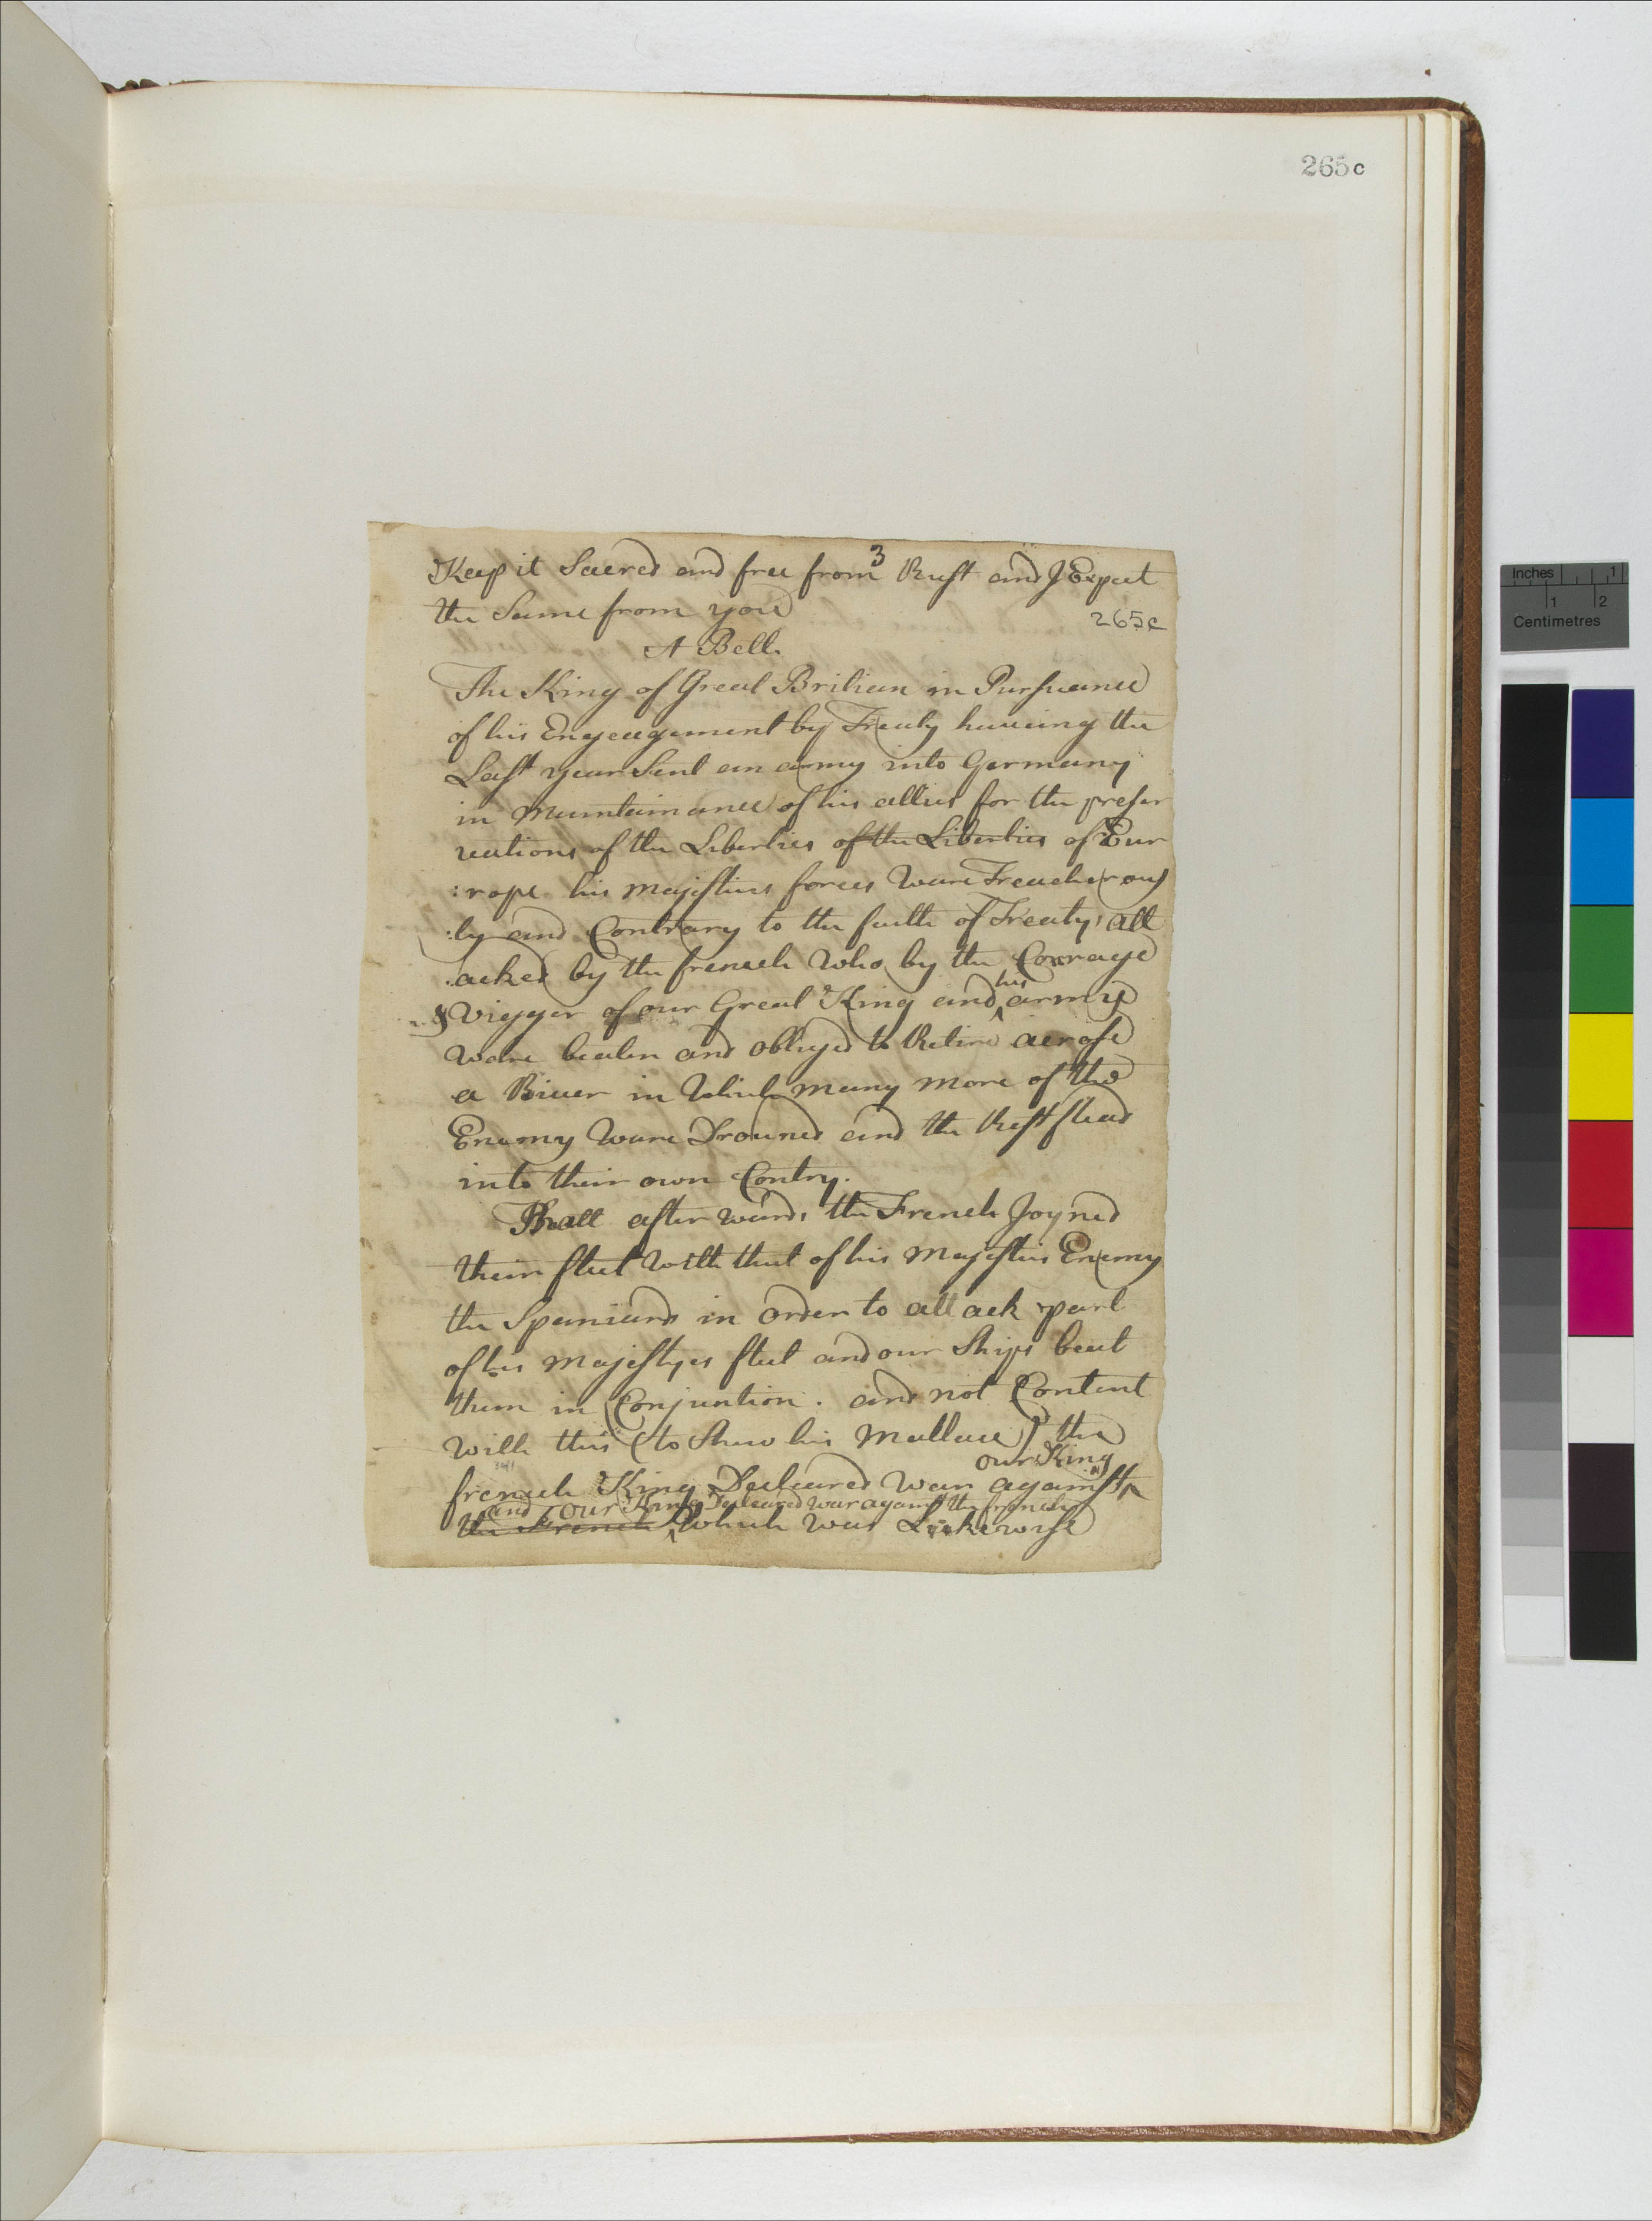 265c
3
Keep it Sacred and free from Rust and I Expect
the Same from you
265c
A Belt.
The King of Great Britian in Pursuance
of his Engeagement by Treaty haveing the
Last year Sent an army into Germany
in Maintainance of his allies for the preser
vations of the Liberties of the Liberties of Eur
:rope his Majesties forces Ware Treacherous
:ly and Contrary to the faith of Treaty att
:acked by the french Who by the Corrage
& Vigger of our Great King and his army
Ware beaten and obliged to Retire acrose
a River in Which many more of the
Enemy Ware Drouned and the Rest flead
into their own Contry.
That after wards the French Joyned
their fleet With that of his Majesties Enemy
the Spaniards in order to attack part
of his Majestyes fleet and our Ships beat
them in Conjuntion. and not Content
with this (to Shew his Mallace) the
our King
french King Decleared War against
and our King Decleared war against the french
the French Which was Likewise
Inches 1
1 2
Centimetres